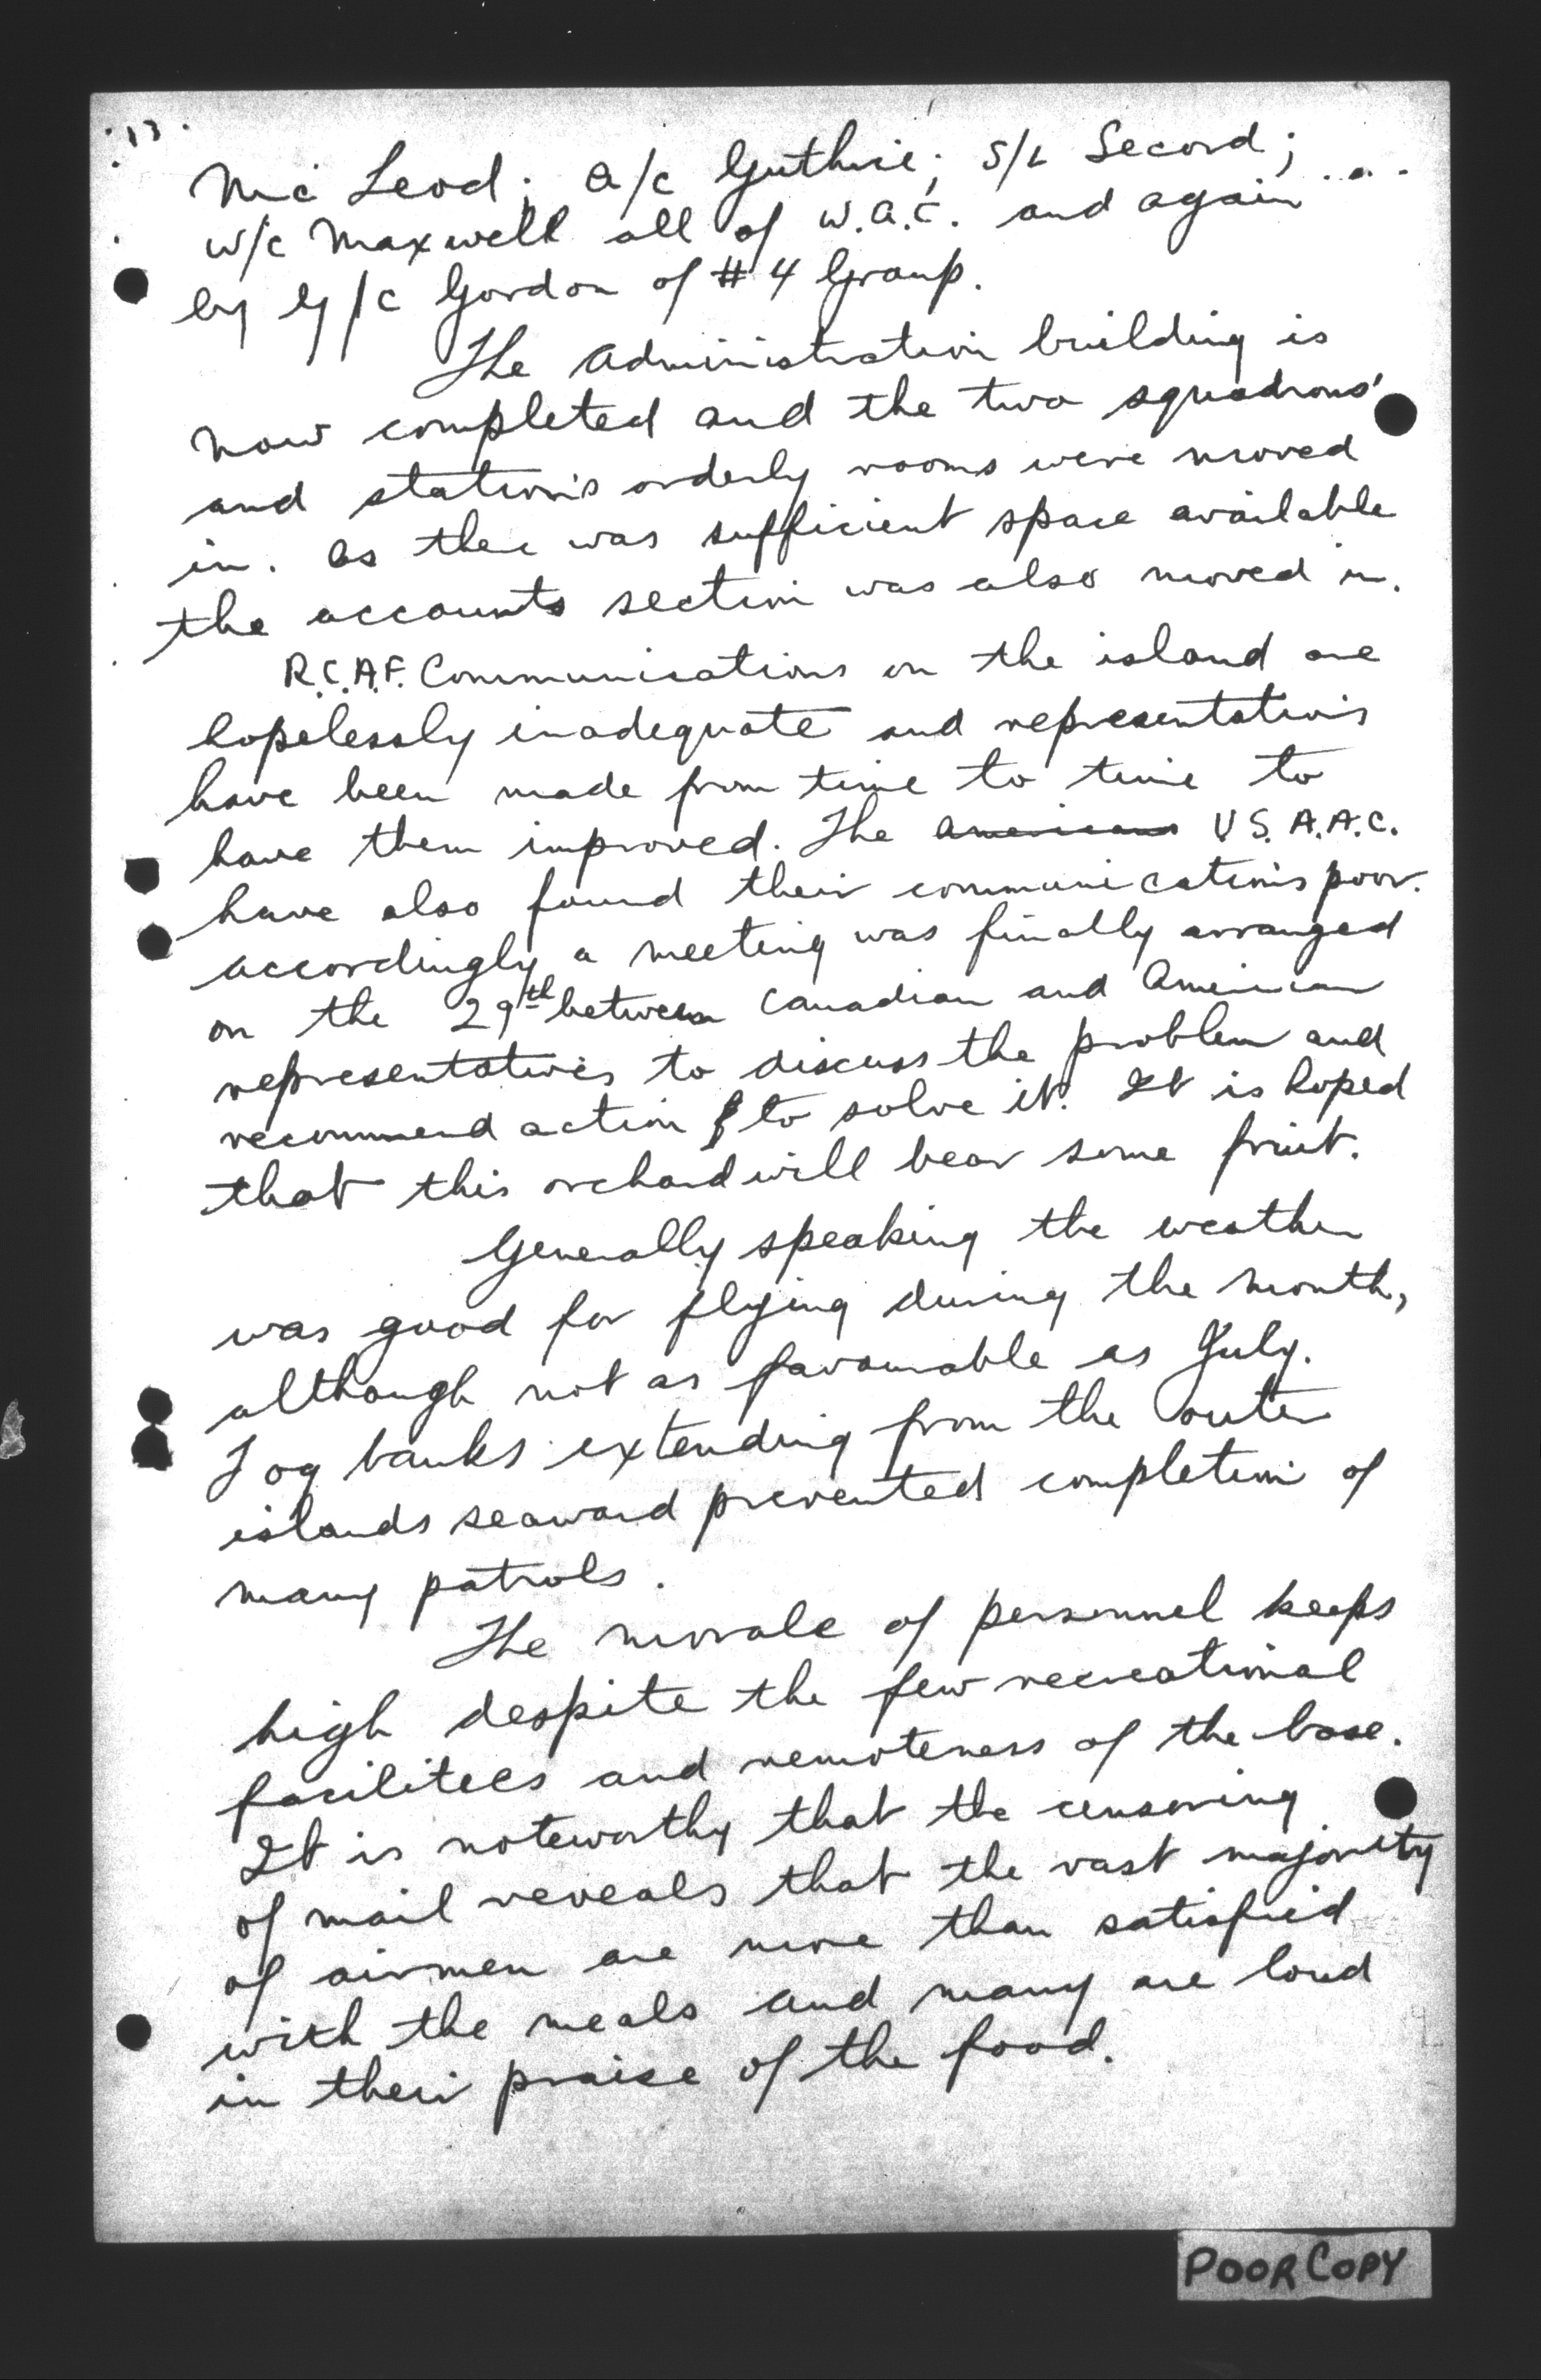 13.
Mc Leod; A/C Guthrie; S/L Secord;
W/C Maxwell all of W.A.C. and again
by G/C Gordon of #4 Group.
The Administration building is
now completed and the two squadrons'
and station's orderly rooms were moved
in. As there was sufficient space available
the accounts section was also moved in.
R.C.A.F. Communications on the island are
hopelessly inadequate and representations
have been made from time to time to
have them improved. The Americans U.S.A.A.C.
have also found their communications poor.
Accordingly a meeting was finally arranged
on the 29th between Canadian and American
representatives to discuss the problem and
recommend action to solve it. It is hoped
that this orchard will bear some fruit.
Generally speaking the weather
was good for flying during the month,
although not as favourable as July.
Fog banks extending from the outer
islands seaward prevented completion of
many patrols.
The morale of personnel keeps
high despite the few recreational
facilitees and remoteness of the base.
It is noteworthy that the censoring
of mail reveals that the vast majority
of airmen are more than satisfied
with the meals and many are loud
in their praise of the food.
POOR COPY